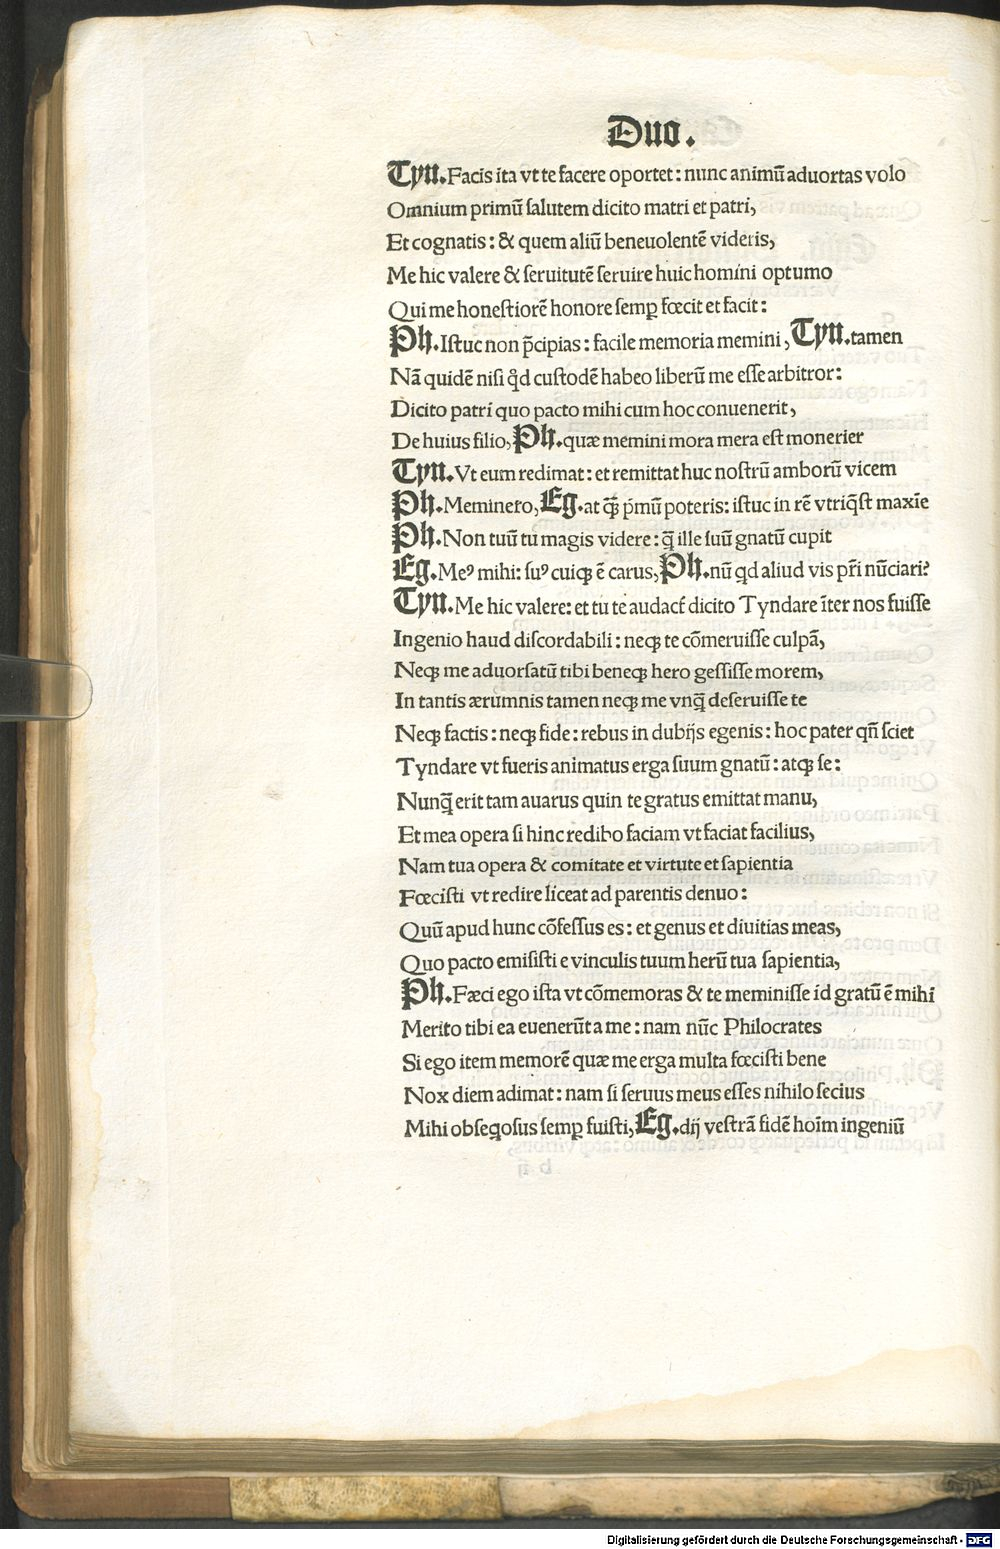 Duo.
Tyn. Facis ita vt te facere oportet: nunc animū aduortas volo
Omnium primū ſalutem dicito matri et patri,
Et cognatis: & quem aliū beneuolentē videris,
Me hic valere & ſeruitutē ſeruire huic homini optumo
Qui me honeſtiorē honore ſemꝑ fœcit et facit:
Ph. Iſtuc non p̄cipias: facile memoria memini, Tyn. tamen
Nā quidē niſi qd̓ cuſtodē habeo liberū me eſſe arbitror:
Dicito patri quo pacto mihi cum hoc conuenerit,
De huius filio, Ph. quæ memini mora mera eſt monerier
Tyn. Vt eum redimat: et remittat huc noſtrū amborū vicem
Ph. Meminero, Eg. at qꝫ̄ p̓mū poteris: iſtuc in rē vtriqꝫſt maxīe
Ph. Non tuū tu magis videre: q̄ ille ſuū gnatū cupit
Eg. Meꝰ mihi: ſuꝰ cuiqꝫ ē carus, Ph. nū qd aliud vis pr̄i nūciari?
Tyn. Me hic valere: et tu te audacſ dicito Tyndare īter nos fuiſſe
Ingenio haud diſcordabili: neqꝫ te cōmeruiſſe culpā,
Neqꝫ me aduorſatū tibi beneqꝫ hero geſſiſſe morem,
In tantis ærumnis tamen neqꝫ me vnq̄ deſeruiſſe te
Neqꝫ factis: neqꝫ fide: rebus in dubijs egenis: hoc pater qn̄ ſciet
Tyndare vt fueris animatus erga ſuum gnatū: atqꝫ ſe:
Nunq̄ erit tam auarus quin te gratus emittat manu,
Et mea opera ſi hinc redibo faciam vt faciat facilius,
Nam tua opera & comitate et virtute et ſapientia
Fœciſti vt redire liceat ad parentis denuo:
Quū apud hunc cōfeſſus es: et genus et diuitias meas,
Quo pacto emiſiſti e vinculis tuum herū tua ſapientia,
Ph. Fæci ego iſta vt cōmemoras & te meminiſſe id gratū ē mihi
Merito tibi ea euenerūt a me: nam nūc Philocrates
Si ego item memorē quæ me erga multa fœciſti bene
Nox diem adimat: nam ſi ſeruus meus eſſes nihilo ſecius
Mihi obſeqoſus ſemꝑ fuiſti, Eg. dij veſtrā fidē hoīm ingeniū
Digitalisierung gefördert durch die Deutsche Forschungsgemeinschaft - DFG